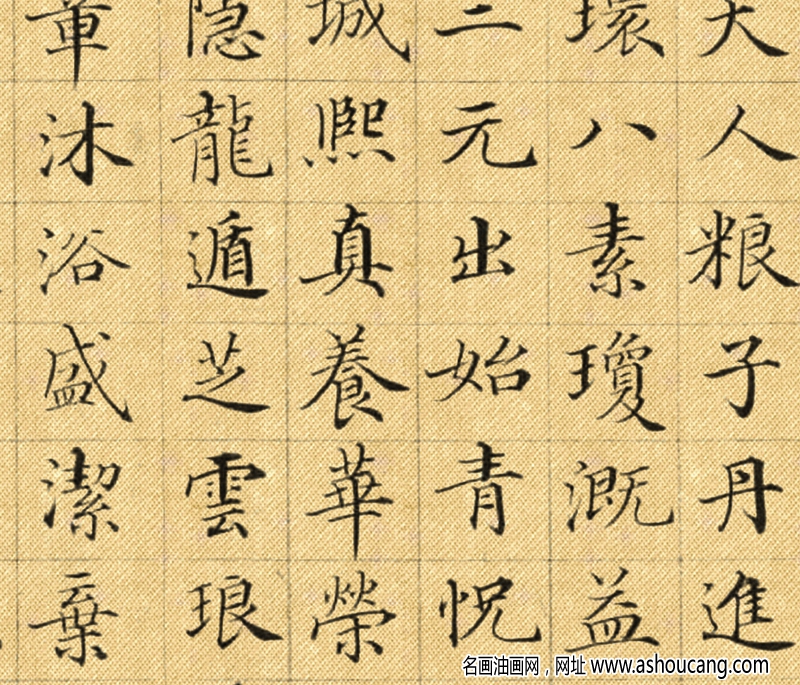 人粮子丹進
環八素瓊溉益
元出始青怳
城熙真養華榮
隐龍遁芝雲琅
沐浴盛潔棄
名画油画网，网址 www.ashoucang.com